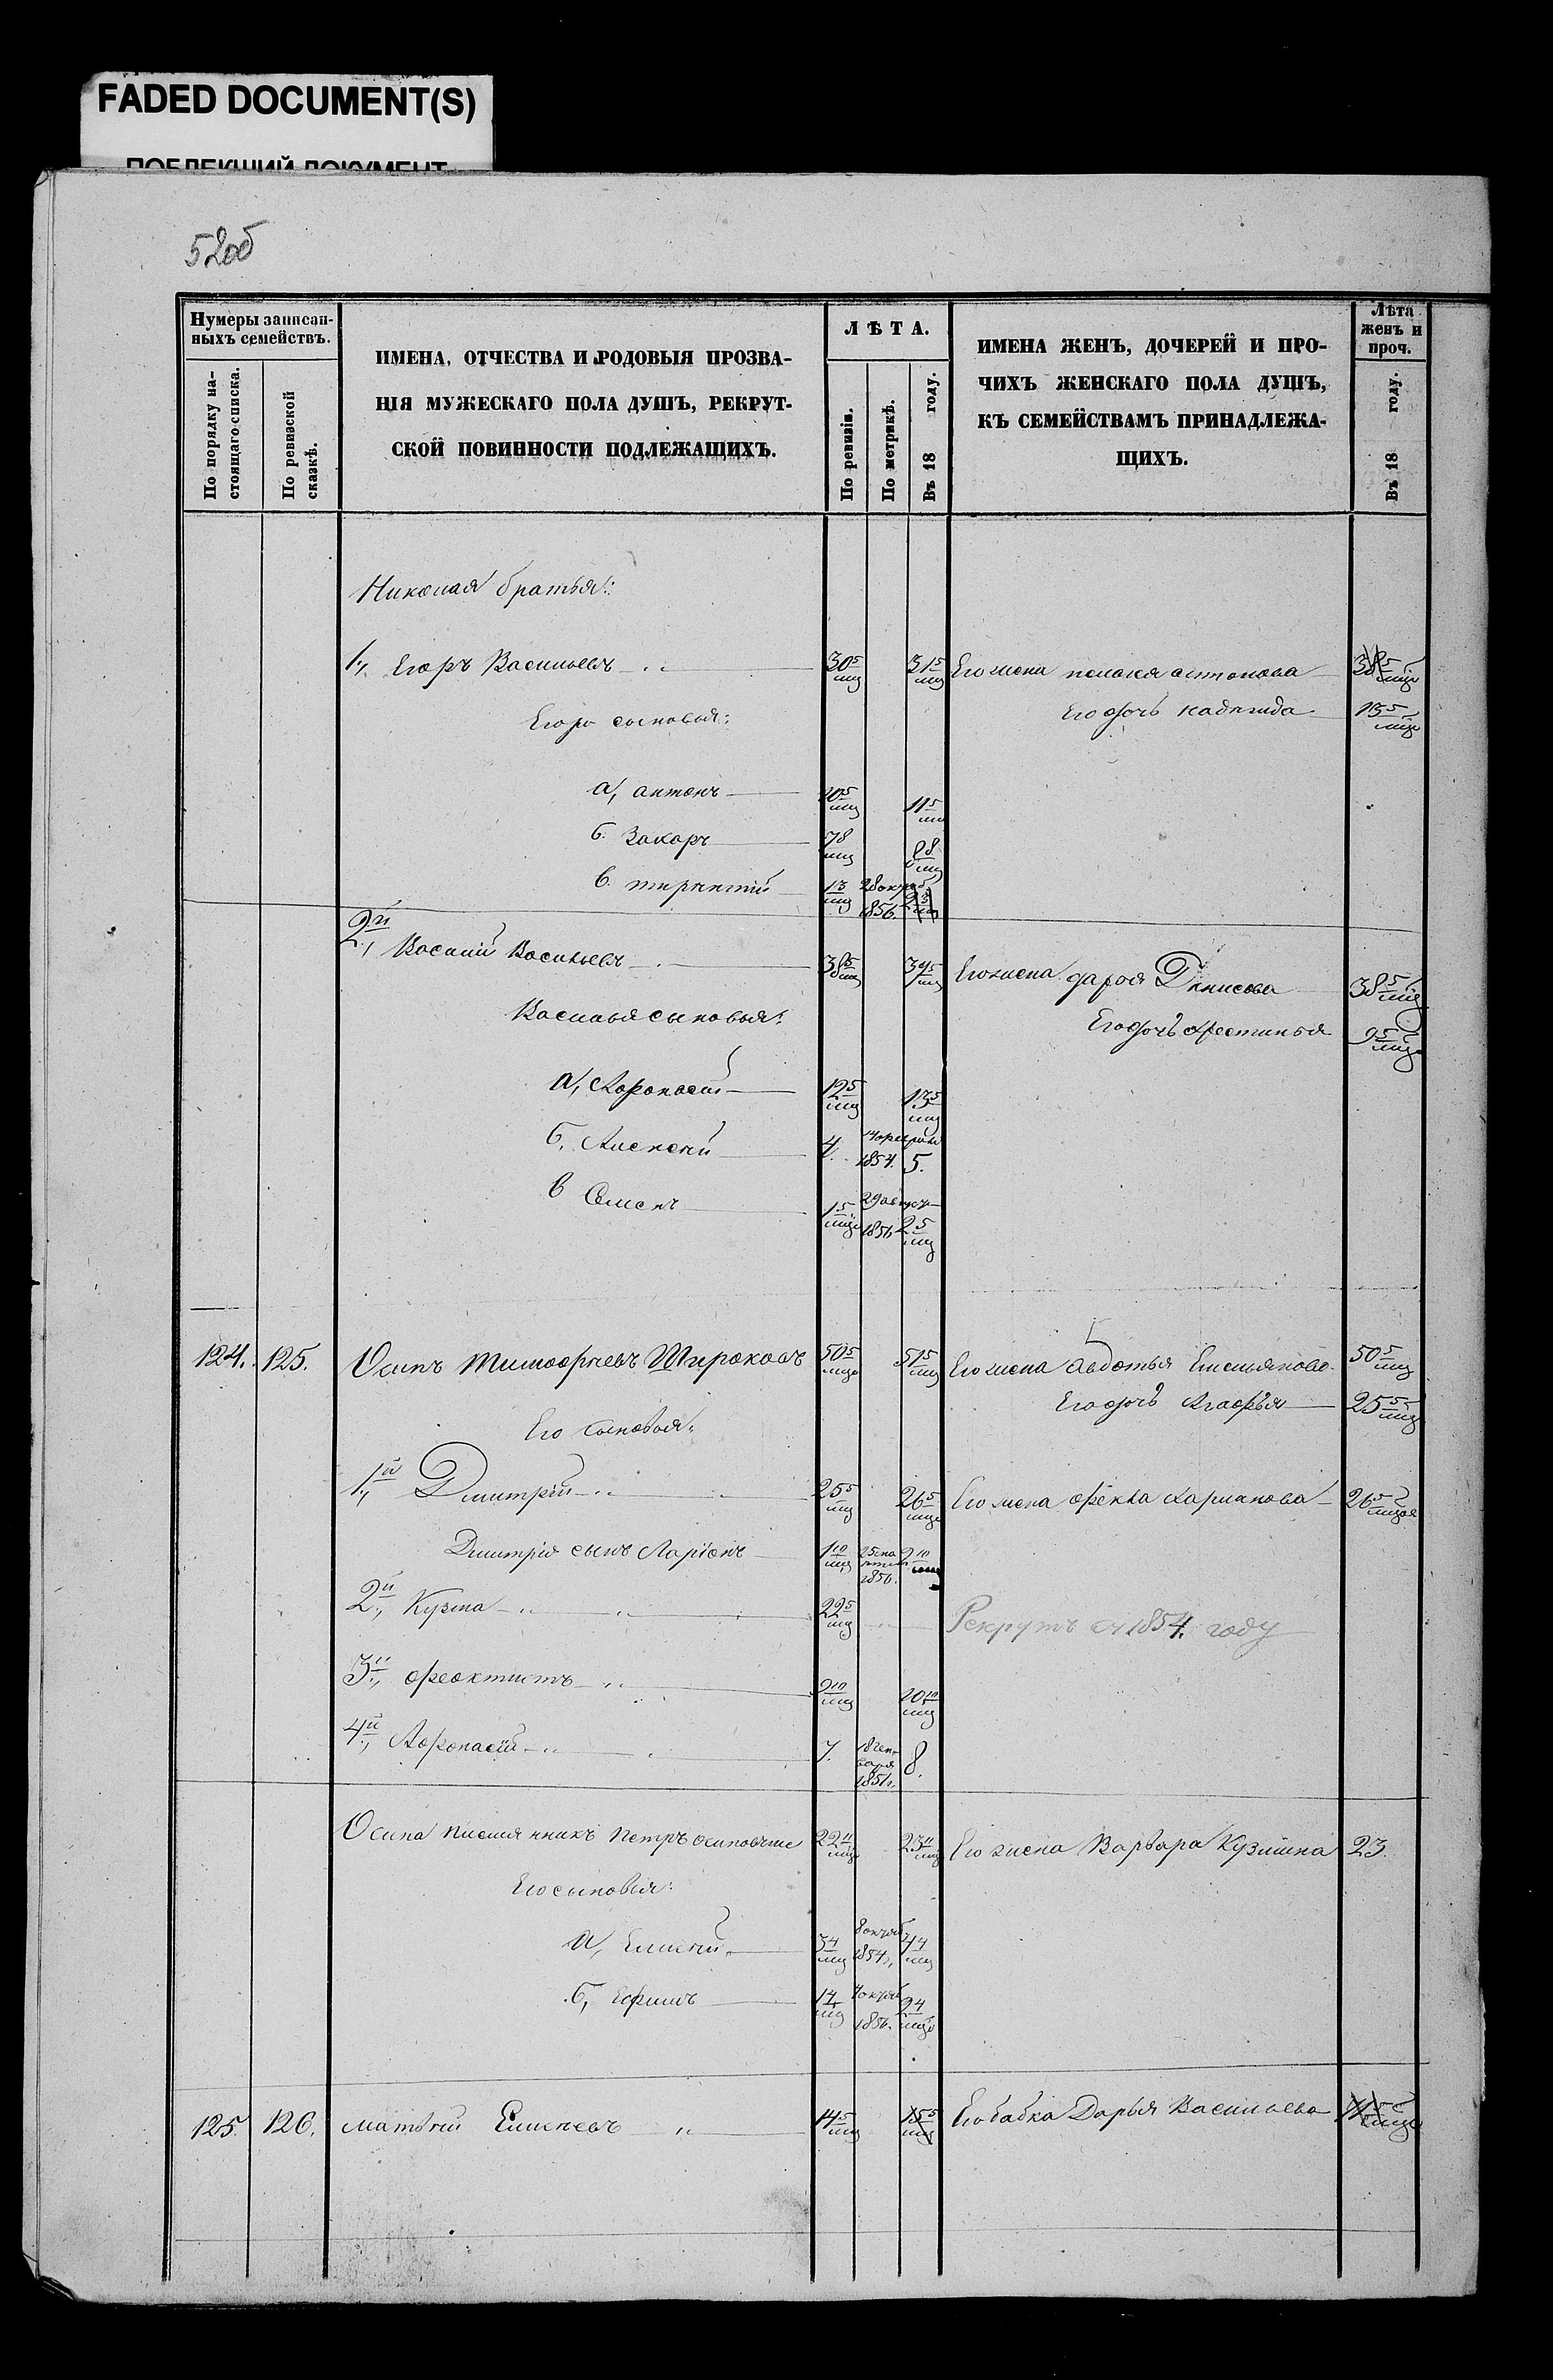 FADED DOCUMENT(S)
ПОБЛЕКШИЙ ДОКУМЕНТ
52об
Нумеры записан-
ныхъ семействъ.
По порядку на-
стоящаго списка.
По ревизской
сказкѣ.
ИМЕНА, ОТЧЕСТВА И РОДОВЫЯ ПРОЗВА-
НІЯ МУЖЕСКАГО ПОЛА ДУШЪ, РЕКРУТ-
СКОЙ ПОВИННОСТИ ПОДЛЕЖАЩИХЪ.
ЛѢТА.
По ревизіи.
По метрикѣ.
Въ 18 году.
ИМЕНА ЖЕНЪ, ДОЧЕРЕЙ И ПРО-
ЧИХЪ ЖЕНСКАГО ПОЛА ДУШЪ,
КЪ СЕМЕЙСТВАМЪ ПРИНАДЛЕЖА-
ЩИХЪ.
Лѣта
женъ и
проч.
Въ 18 году.
Николая братья:
1, Егоръ Васильевъ 30 5/мц 31 5/мц Его жена антонова
Егора сыновья: Его дочь надежда 15 5/мц
а, антонъ 10 5/мц 11 5/мц
б. Захаръ 7 8/мц 8 8/мц
в. терентий 1 3/мц 28 октяб 1856. 2 3/мц
2й, Васили Васильевъ 38 5/мц 39 5/мц Его жена дарья Денисова 38 5/мц
Василья сыновья: Его дочь 9 5/мц
а, Афонасии 12 5/мц 13 5/мц
б, Алексеи 4. 1854. 5.
в Семенъ 1 5/мц 29 август 1856 2 5/мц
124. 125. Осипъ Тимофеевъ Широковъ 50 5/мц 51 5/мц Его жена Авдотья Емельянова 50 5/мц
Его дочь Агафья 25 5/мц
Его сыновья:
1й, Дмитрій 25 5/мц 26 5/мц Его жена фекла харланова 26 5/мц
Дмитрия сынъ Ларіонъ 1 10/мц 1856. 2 10/мц
2й, Кузма 22 5/мц Рекрутъ съ 1854. году
3й, феоктистъ 9 10/мц 10 10/мц
4й, Афонасій 7. 18 ген-
варя
1851г. 8.
Осипа племянникъ Петръ 22 11/мц 23 11/мц Его жена Варвара Кузмина 23.
Его сыновья:
а, Елисей 3 4/мц 8 октяб 1854г. 4 4/мц
б, Ефимъ 1 4/мц 4 октяб 1856. 2 4/мц
125. 126. матвей Елисеевъ 14 5/мц 15 5/мц Его бабка Дарья Васильева